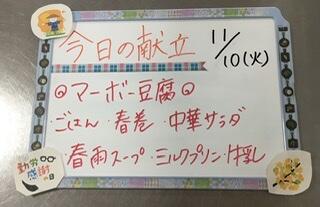 今日の献立 11/10(火)
◎マーボー豆腐◎
・ごはん・春巻・中華サラダ
・春雨スープ・ミルクプリン・牛乳
勤労
感謝
の日